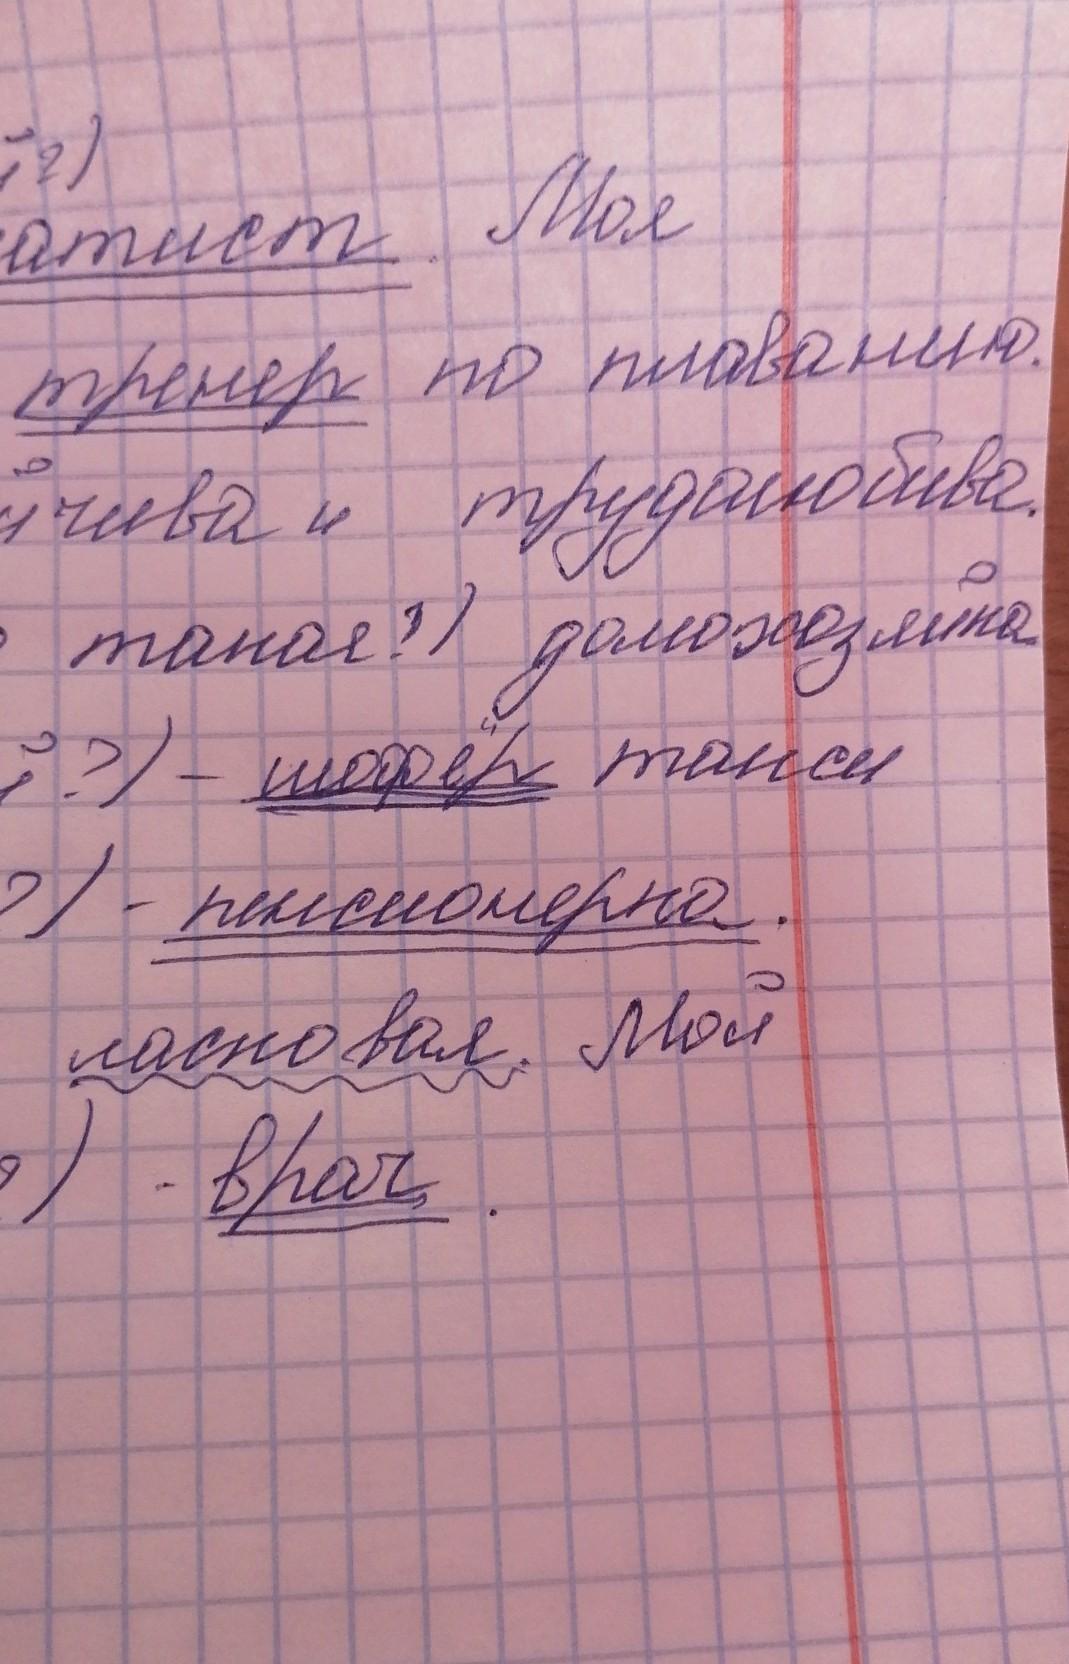 й?)
атист. Моя
тренер по плаванию.
йчива и трудолюбива.
такая?) домохозяйка
й?) - шофёр такси
?) - пенсионерка.
ласковая. Мой
) - врач.